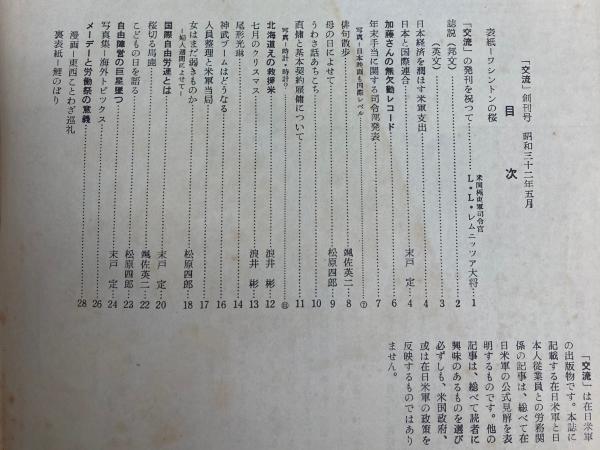 「交流」創刊号 昭和三十二年五月
目次
表紙―ワシントンの桜
「交流」の発刊を祝って………米国極東軍司令官 L・L・レムニッツア大将…1
誌説(邦文)………2
(英文)………3
日本経済を潤ほす米軍支出………4
日本と国際連合………末戸 定…4
加藤さんの無欠勤レコード………6
年末手当に関する司令部発表………7
写真―日本映画も国際レベル………⑦
俳句散歩………颯佐英二…8
母の日によせて………松原四郎…9
うわさ話あちこち………10
直傭と基本契約雇傭について………11
写真―時計・時計?………⑪
北海道えの救援米………浪井 彬…12
七月のクリスマス………浪井 彬…13
尾形光琳………14
神武ブームはどうなる………16
人員整理と米軍当局………17
女はまだ弱きものか………松原四郎…18
―婦人週間によせて―
国際自由労連とは………末戸 定…20
桜切る馬鹿………颯佐英二…22
こどもの日を語る………松原四郎…23
自由陣営の巨星墜つ………末戸 定…24
写真集―海外トピックス………26
メーデーと労働祭の意義………28
漫画―東西ことわざ巡礼
裏表紙―鯉のぼり
「交流」は在日米軍
の出版物です。本誌に
記載する在日米軍と日
本人従業員との労務関
係の記事は、総べて在
日米軍の公式見解を表
明するものです。他の
記事は、総べて読者に
興味のあるものを選び
必ずしも、米国政府、
或は在日米軍の政策を
反映するものではあり
ません。